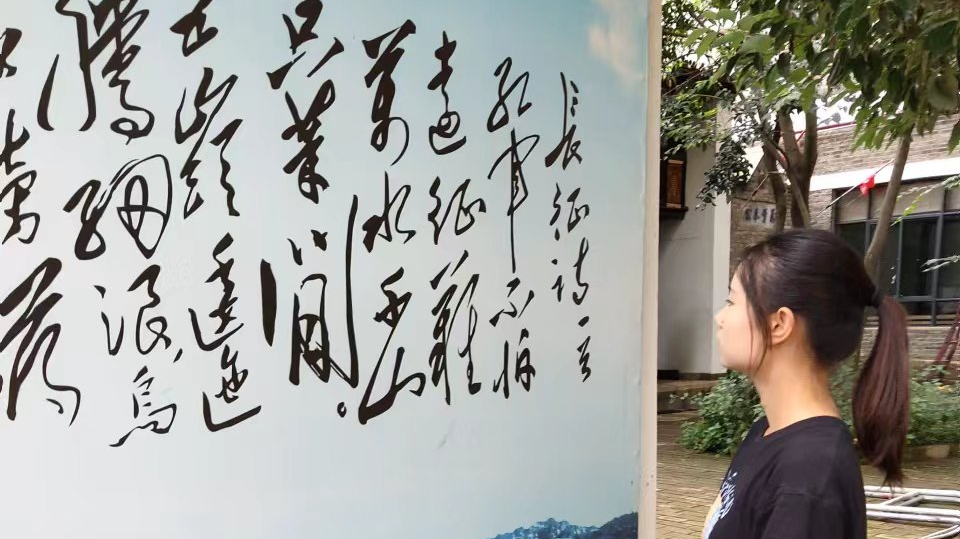 長征詩一首
紅軍不怕
遠征難
萬水千山
只等閒。
五嶺逶迤
騰細浪,烏